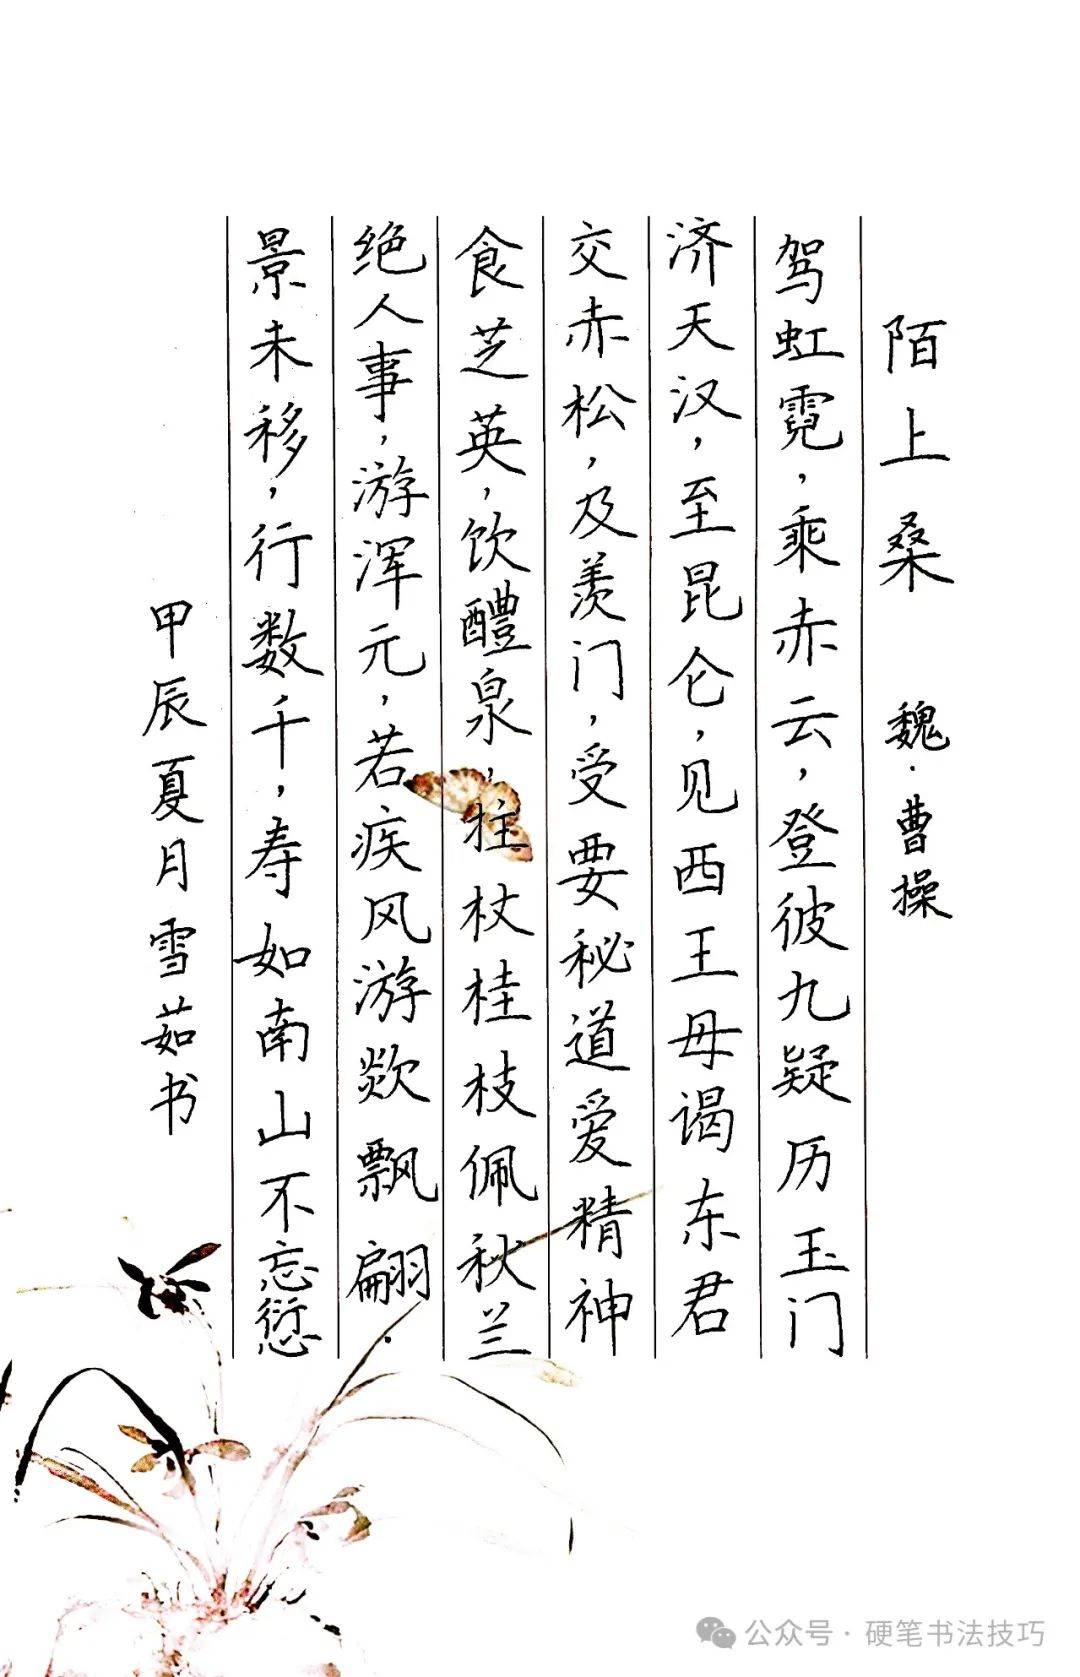 陌上桑 魏·曹操
驾虹霓，乘赤云，登彼九疑历玉门
济天汉，至昆仑，见西王母谒东君
交赤松，及羡门，受要秘道爱精神
食芝英，饮醴泉，拄杖桂枝佩秋兰
绝人事，游浑元，若疾风游欻飘翩.
景未移，行数千，寿如南山不忘愆
甲辰夏月雪茹书
公众号·硬笔书法技巧